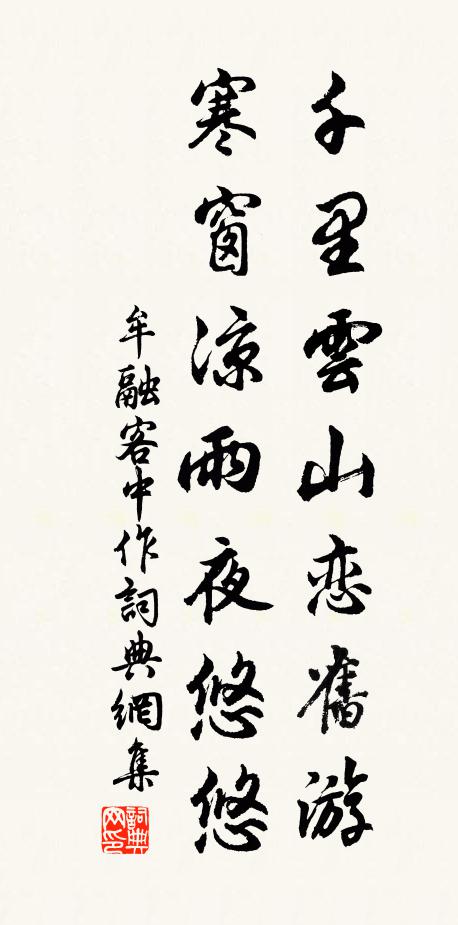 千里雲山恋舊游
寒窗涼雨夜悠悠
牟融客中作詞典網集
詞典网印